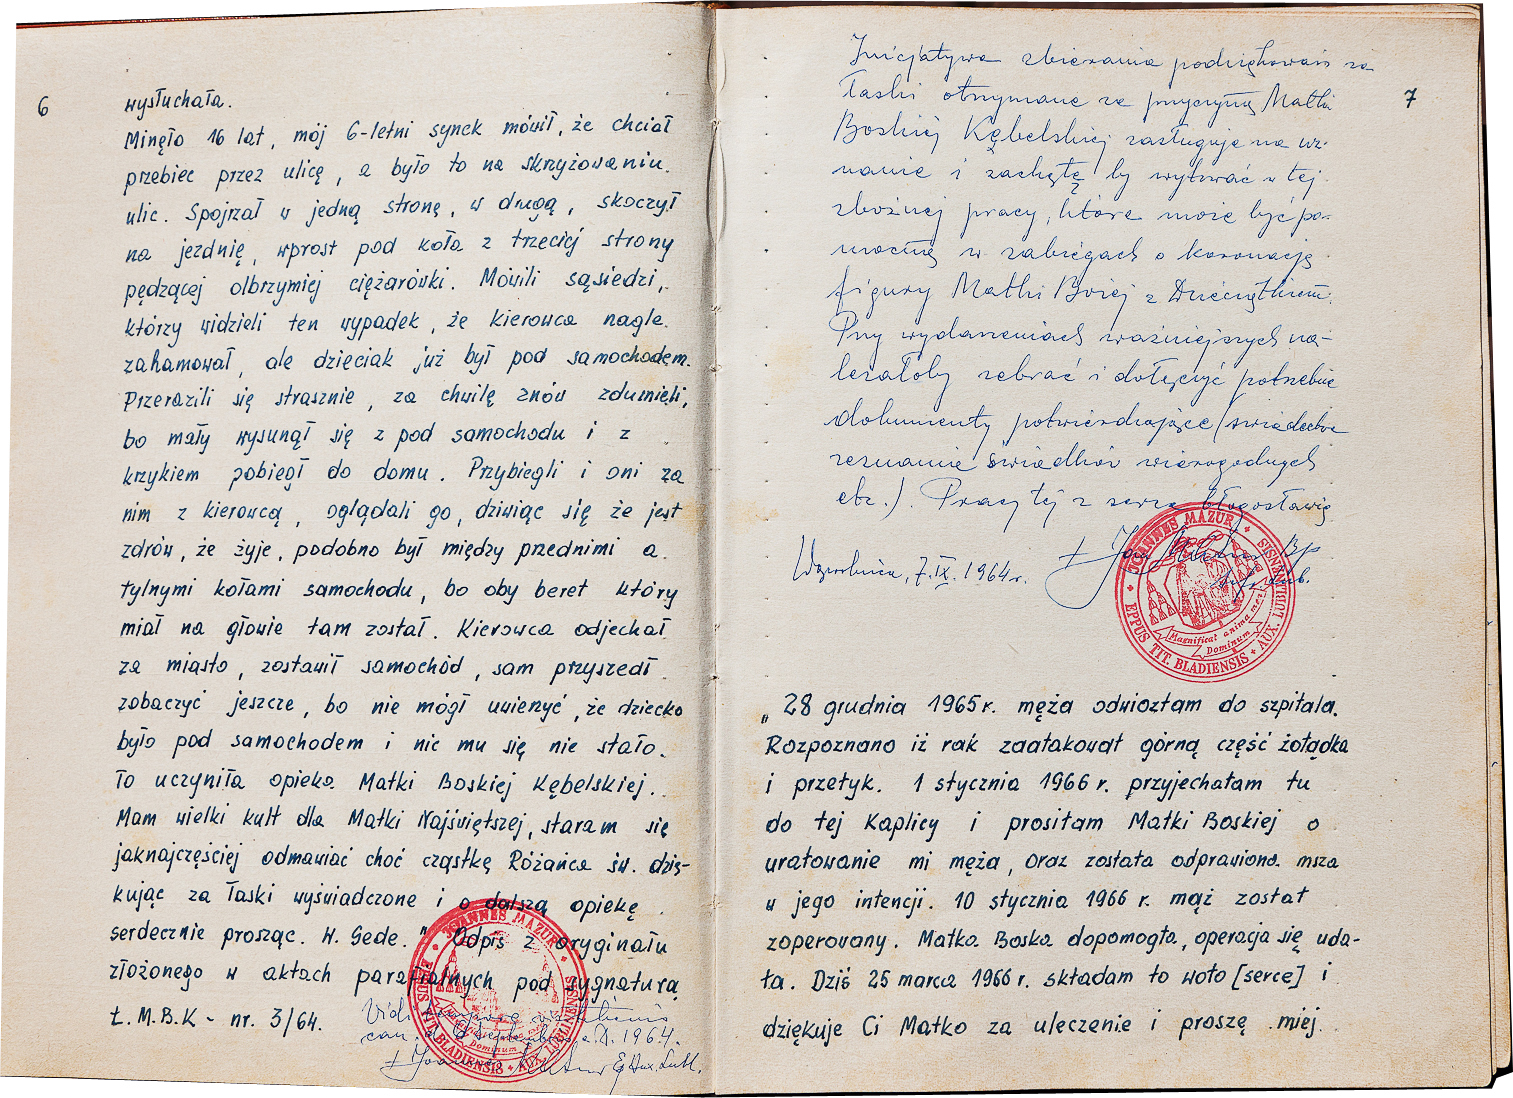 6
wysłuchała.
Minęło 16 lat, mój 6-letni synek mówił, że chciał
przebiec przez ulicę, a było to na skrzyżowaniu.
ulic. Spojrzał w jedną stronę, w drugą, skoczył
na jezdnię, wprost pod koła z trzeciej strony
pędzącej olbrzymiej ciężarówki. Mówili sąsiedzi,
którzy widzieli ten wypadek, że kierowca nagle.
zahamował, ale dzieciak już był pod samochodem.
Przerazili się strasznie, za chwilę znów zdumieli,
bo mały wysunął się z pod samochodu i z
krzykiem pobiegł do domu. Przybiegli i oni za
nim z kierowcą, oglądali go, dziwiąc się że jest
zdrów, że żyje, podobno był między przednimi a
tylnymi kołami samochodu, bo oby beret który
miał na głowie tam został. Kierowca odjechał
za miasto, zostawił samochód, sam przyszedł
zobaczyć jeszcze, bo nie mógł uwierzyć, że dziecko
było pod samochodem i nic mu się nie stało.
To uczyniła opieka Matki Boskiej Kębelskiej.
Mam wielki kult dla Matki Najświętszej, staram się
jaknajczęściej odmawiać choć cząstkę Różańca św. dzię-
kując za łaski wyświadczone i o dalszą opiekę
serdecznie prosząc. W. Gede." Odpis z oryginału
złożonego w aktach parafialnych pod sygnaturą
Ł.M.B.K - nr. 3/64.
Vidi tempore visitationis
can. a.D. 1964.
+ Joannes Mazur Ep Aux. Lubl.
JOANNES MAZUR
EPPUS TIT. BLADIENSIS + AUX. LUBLINENSIS
Dominum
7
Inicjatywa zbierania podziękowań za
łaski otrzymane za przyczyną Matki
Boskiej Kębelskiej zasługuje na uz-
nanie i zachętę by wytrwać w tej
zbożnej pracy, która może być po-
mocną w zabiegach o koronację
figury Matki Bożej z Dzieciątkiem.
Przy wydarzeniach ważniejszych na-
leżałoby zebrać i dołączyć potrzebne
dokumenty potwierdzające (świadectwa
zeznania świadków wiarogodnych
etc.). Pracy tej z serca błogosławię
+ Jan Mazur Bp
Wąwolnica, 7.IX.1964 r.
JOANNES MAZUR
EPPUS TIT. BLADIENSIS + AUX. LUBLINENSIS
Magnificat anima mea
Dominum
„28 grudnia 1965 r. męża odwiozłam do szpitala.
Rozpoznano iż rak zaatakował górną część żołądka
i przełyk. 1 stycznia 1966 r. przyjechałam tu
do tej Kaplicy i prosiłam Matki Boskiej o
uratowanie mi męża, oraz została odprawiona msza
w jego intencji. 10 stycznia 1966 r. mąż został
zoperowany. Matka Boska dopomogła, operacja się uda-
ła. Dziś 25 marca 1966 r. składam to woto [serce] i
dziękuje Ci Matko za uleczenie i proszę miej